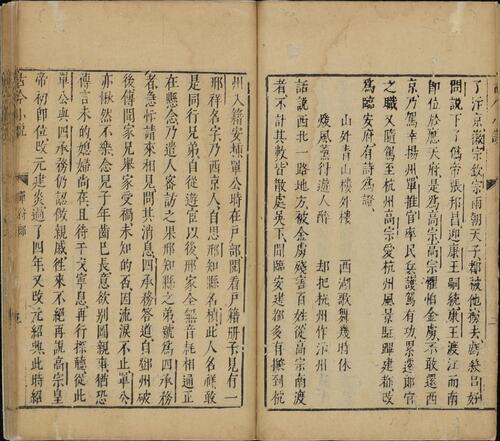 了汴京徽宗欽宗兩朝天子都被他擄去虧殺呂好
問說下了僞帝張邦昌迎康王嗣統康王渡江而南
卽位於應天府是爲高宗高宗懼怕金虜不敢還西
京乃駕幸揚州單推官率民兵護駕有功累遷郎官
之職又隨駕至杭州高宗愛杭州風景駐蹕建都改
爲臨安府有詩爲證
山外青山樓外樓　西湖歌舞幾時休
煖風薰得遊人醉　却把杭州作汴州
話說西北一路地方被金虜殘害百姓從高宗南渡
者不計其數皆散處吳下聞臨安建都多有搬到杭
州入籍安插單公時在戶部閱看戶籍册子見有一
邢祥名字乃西京人自思邢知縣名楨此人名祥敢
是同行兄弟自從遊宦以後邢家全無音耗相通正
在懸念乃遣人密訪之果邢知縣之弟號爲四承務
者急忙請來相見問其消息四承務答道自鄧州破
後傳聞家兄舉家受禍未知的否因流淚不止單公
亦愀然不樂念兒子年齒已長意欲別圖親事猶恐
傳言未的媳婦尚在且待干戈寧息再行探聽從此
單公與四承務仍認做親戚往來不絕再說高宗皇
帝初卽位改元建炎過了四年又改元紹興此時紹
古今小說　單符郎